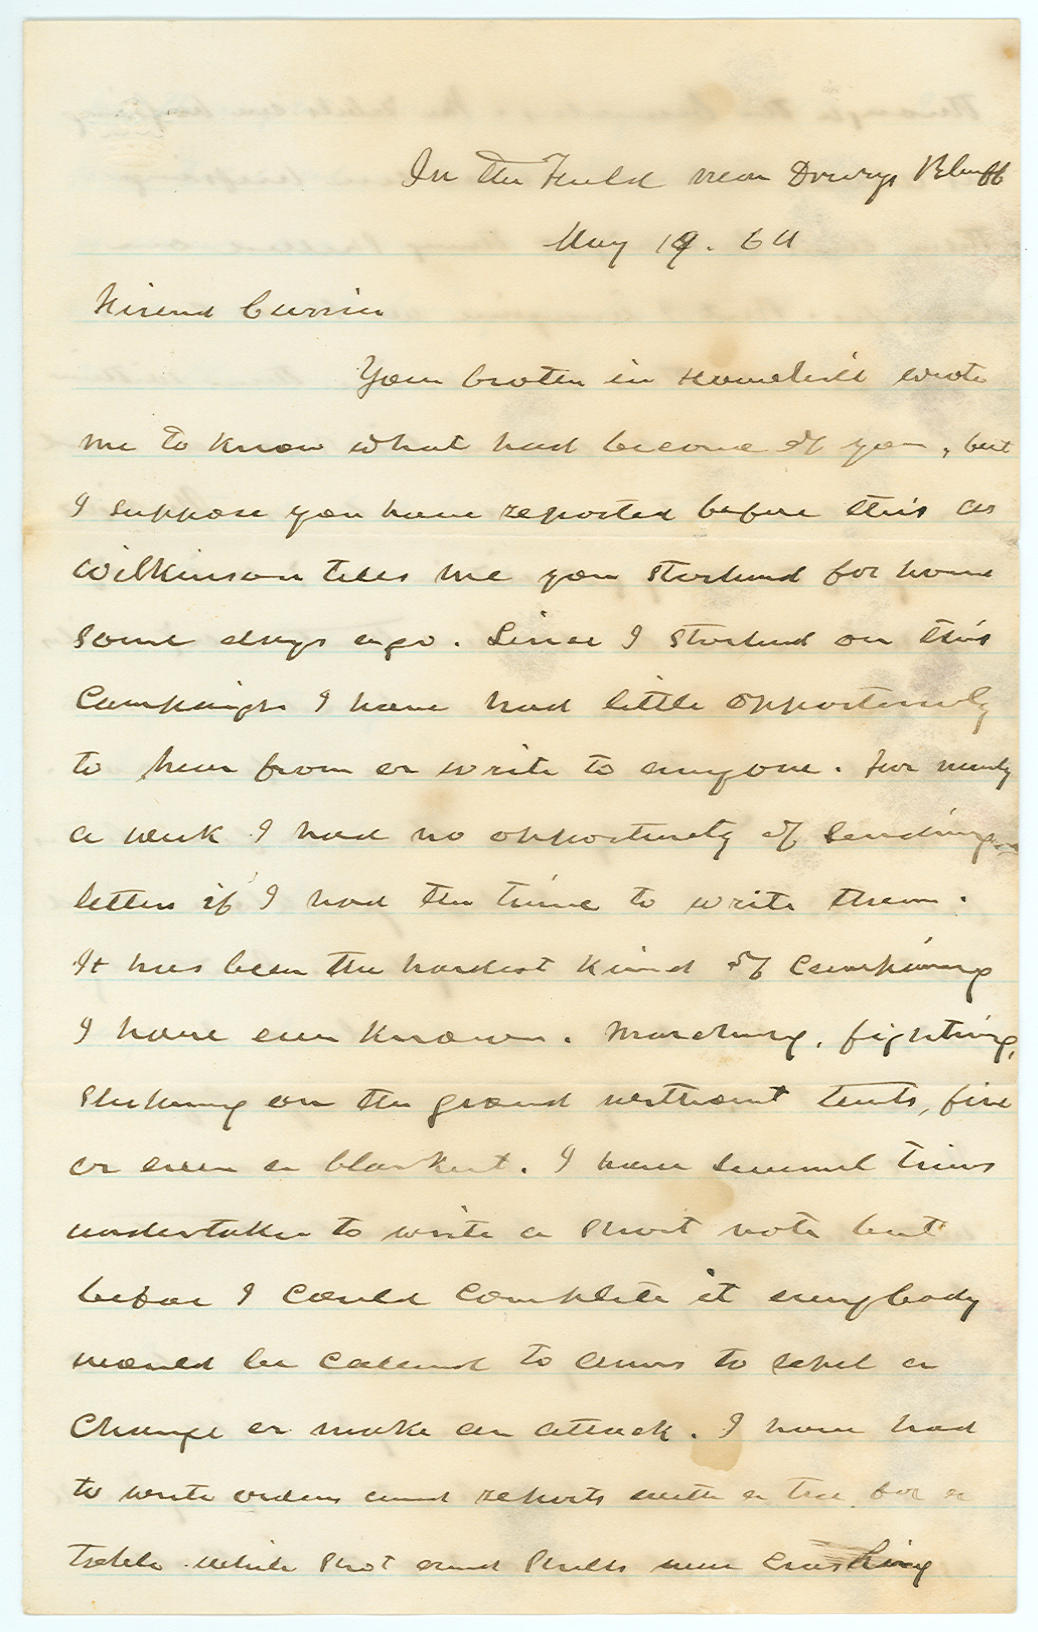 In the Field near Drurys Bluff
May 19. 64
Friend Currier
Your brother in Haverhill wrote
me to know what had become of you, but
I suppose you have reported before this as
Wilkinson tells me you started for home
some days ago. Since I started on this
Campaign I have had little opportunity
to hear from or write to anyone. For nearly
a week I had no opportunity of sending
letters if I had the time to write them.
It has been the hardest kind of campaining
I have ever known. Marching, fighting,
sleeping on the ground without tents, fire
or even a blanket. I have several times
undertaken to write a short note but
before I could complete it everybody
would be called to arms to repel a
charge or make an attack. I have had
to write orders and reports with a tree for a
table while shot and shells were crashing